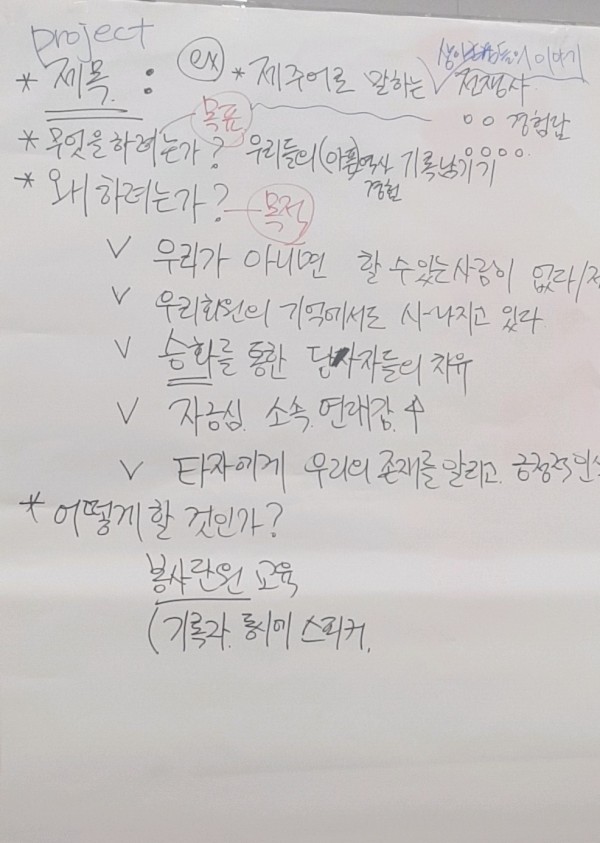 project
* 제목 : ex * 제주어로 말하는 ✓ 전쟁사
이야기
○○ 경험담
목표
* 무엇을 하려는가? 우리들의 (아픔)역사 기록남기기
경험
* 왜 하려는가? 목적
✓ 우리가 아니면 할 수 있는 사람이 없다/
✓ 우리회원의 기억에서도 사라지고 있다
✓ 승화를 통한 당사자들의 치유
✓ 자긍심. 소속. 연대감 ↑
✓ 타자에게 우리의 존재를 알리고. 긍정적 인식
* 어떻게 할 것인가?
봉사단원 교육
(기록자. 동시에 스피커.